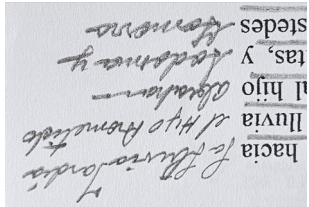 hacia
lluvia
al hijo
tas, Y
stedes
la lluvia tardia
el Hijo Prometido
Abraham
Sodoma y
Gomorra